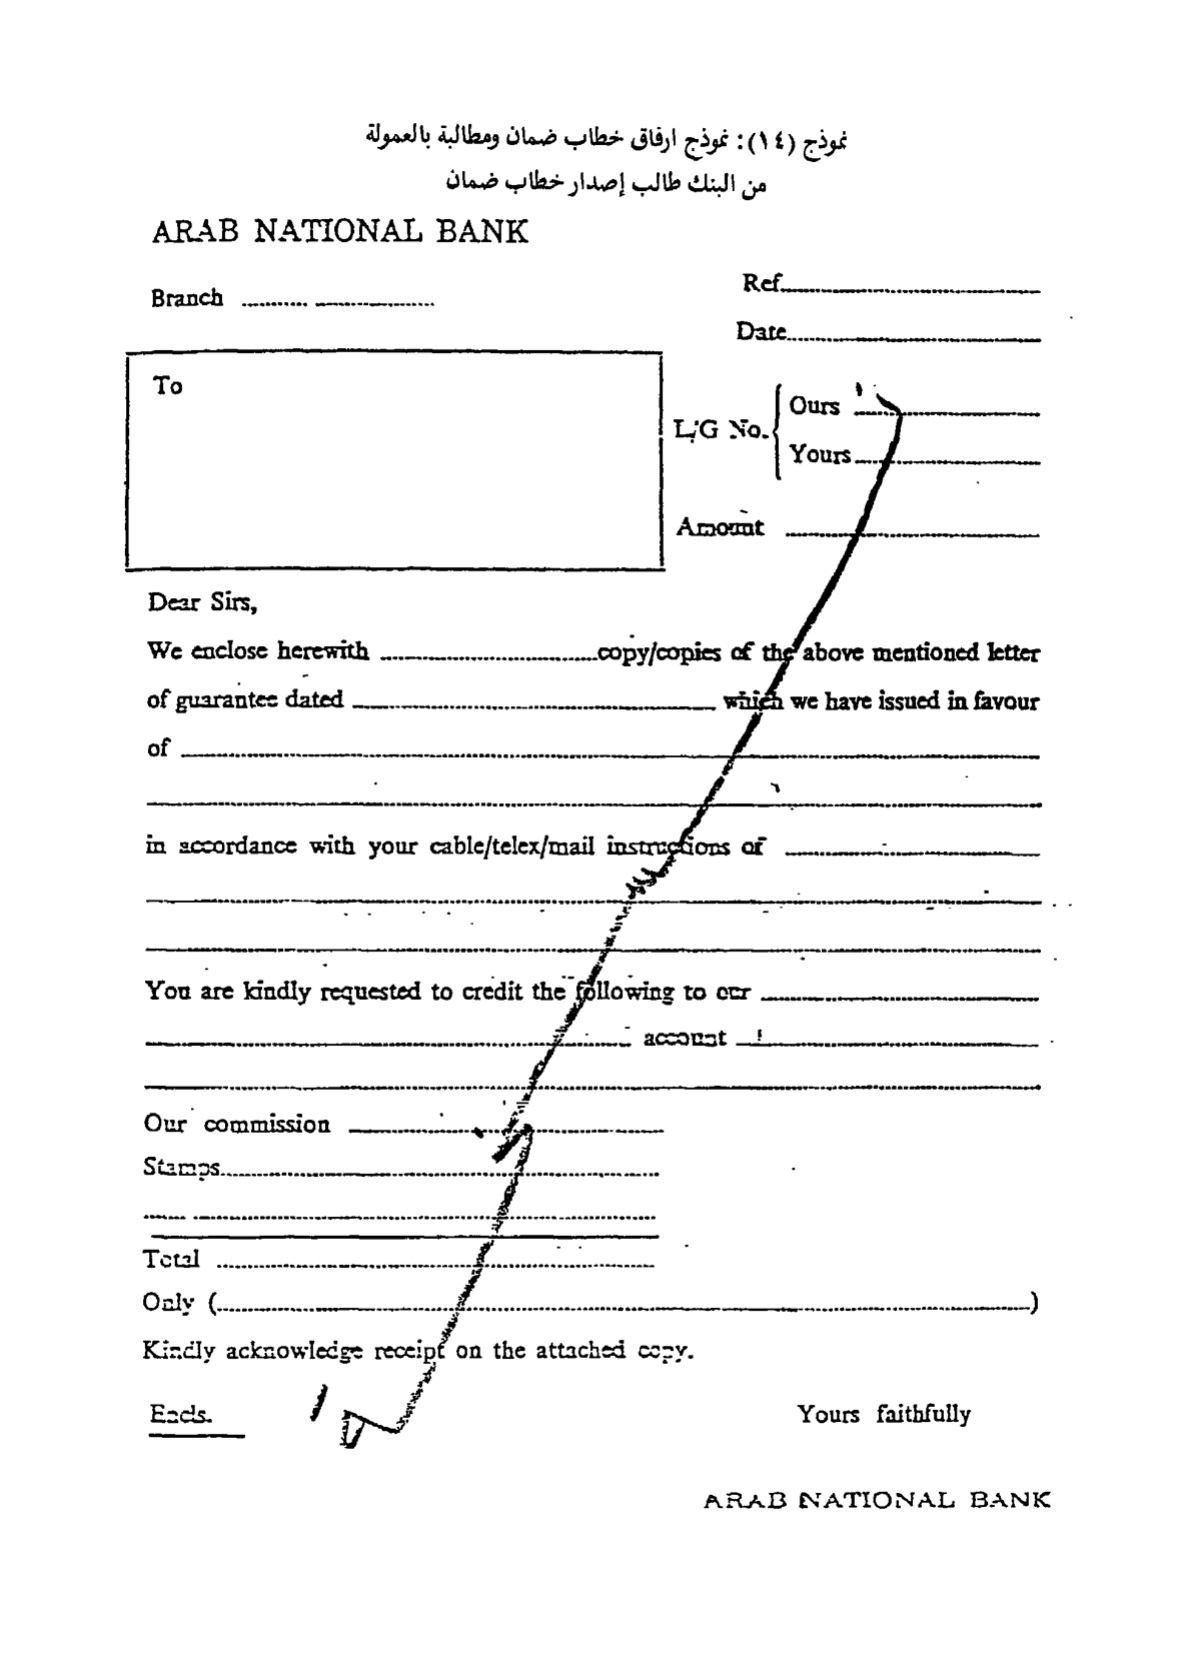 نموذج (١٤): نموذج ارفاق خطاب ضمان ومطالبة بالعمولة
من البنك طالب إصدار خطاب ضمان
ARAB NATIONAL BANK
Branch
Ref
Date
To
L/G No.
Ours
Yours
Amount
Dear Sirs,
We enclose herewith copy/copies of the above mentioned letter
of guarantee dated which we have issued in favour
of
in accordance with your cable/telex/mail instructions of
You are kindly requested to credit the following to our
account
Our commission
Stamps
Total
Only ( )
Kindly acknowledge receipt on the attached copy.
Encls.
Yours faithfully
ARAB NATIONAL BANK